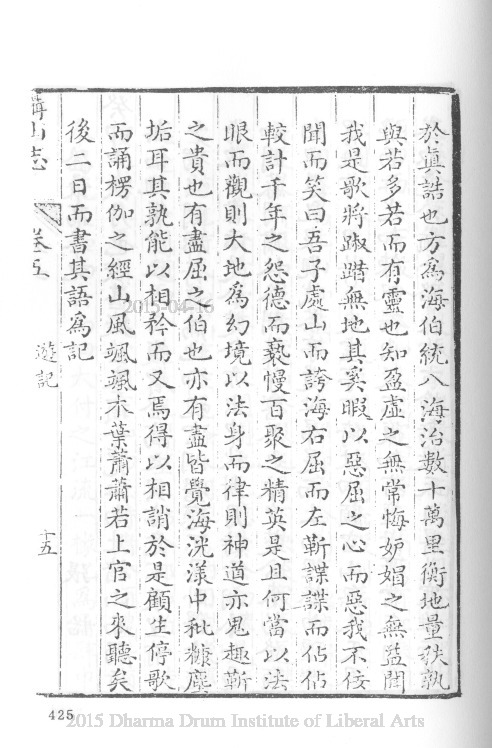 於眞誥也方爲海伯統八海治數十萬里衡地量秩孰
與若多若而有靈也知盈虛之無常悔妒媢之無益聞
我是歌將踧踖無地其奚暇以惡屈之心而惡我不佞
聞而笑曰吾子處山而誇海右屈而左靳諜諜而佔佔
較計千年之怨德而褻慢百聚之精英是且何當以法
眼而觀則大地爲幻境以法身而律則神道亦鬼趣靳
之貴也有盡屈之伯也亦有盡皆覺海洸漾中秕糠塵
垢耳其孰能以相矜而又焉得以相誚於是顧生停歌
而誦楞伽之經山風颯颯木葉蕭蕭若上官之來聽矣
後二日而書其語爲記
山志
卷五
遊記
十五
2015-04-16
425
2015 Dharma Drum Institute of Liberal Arts